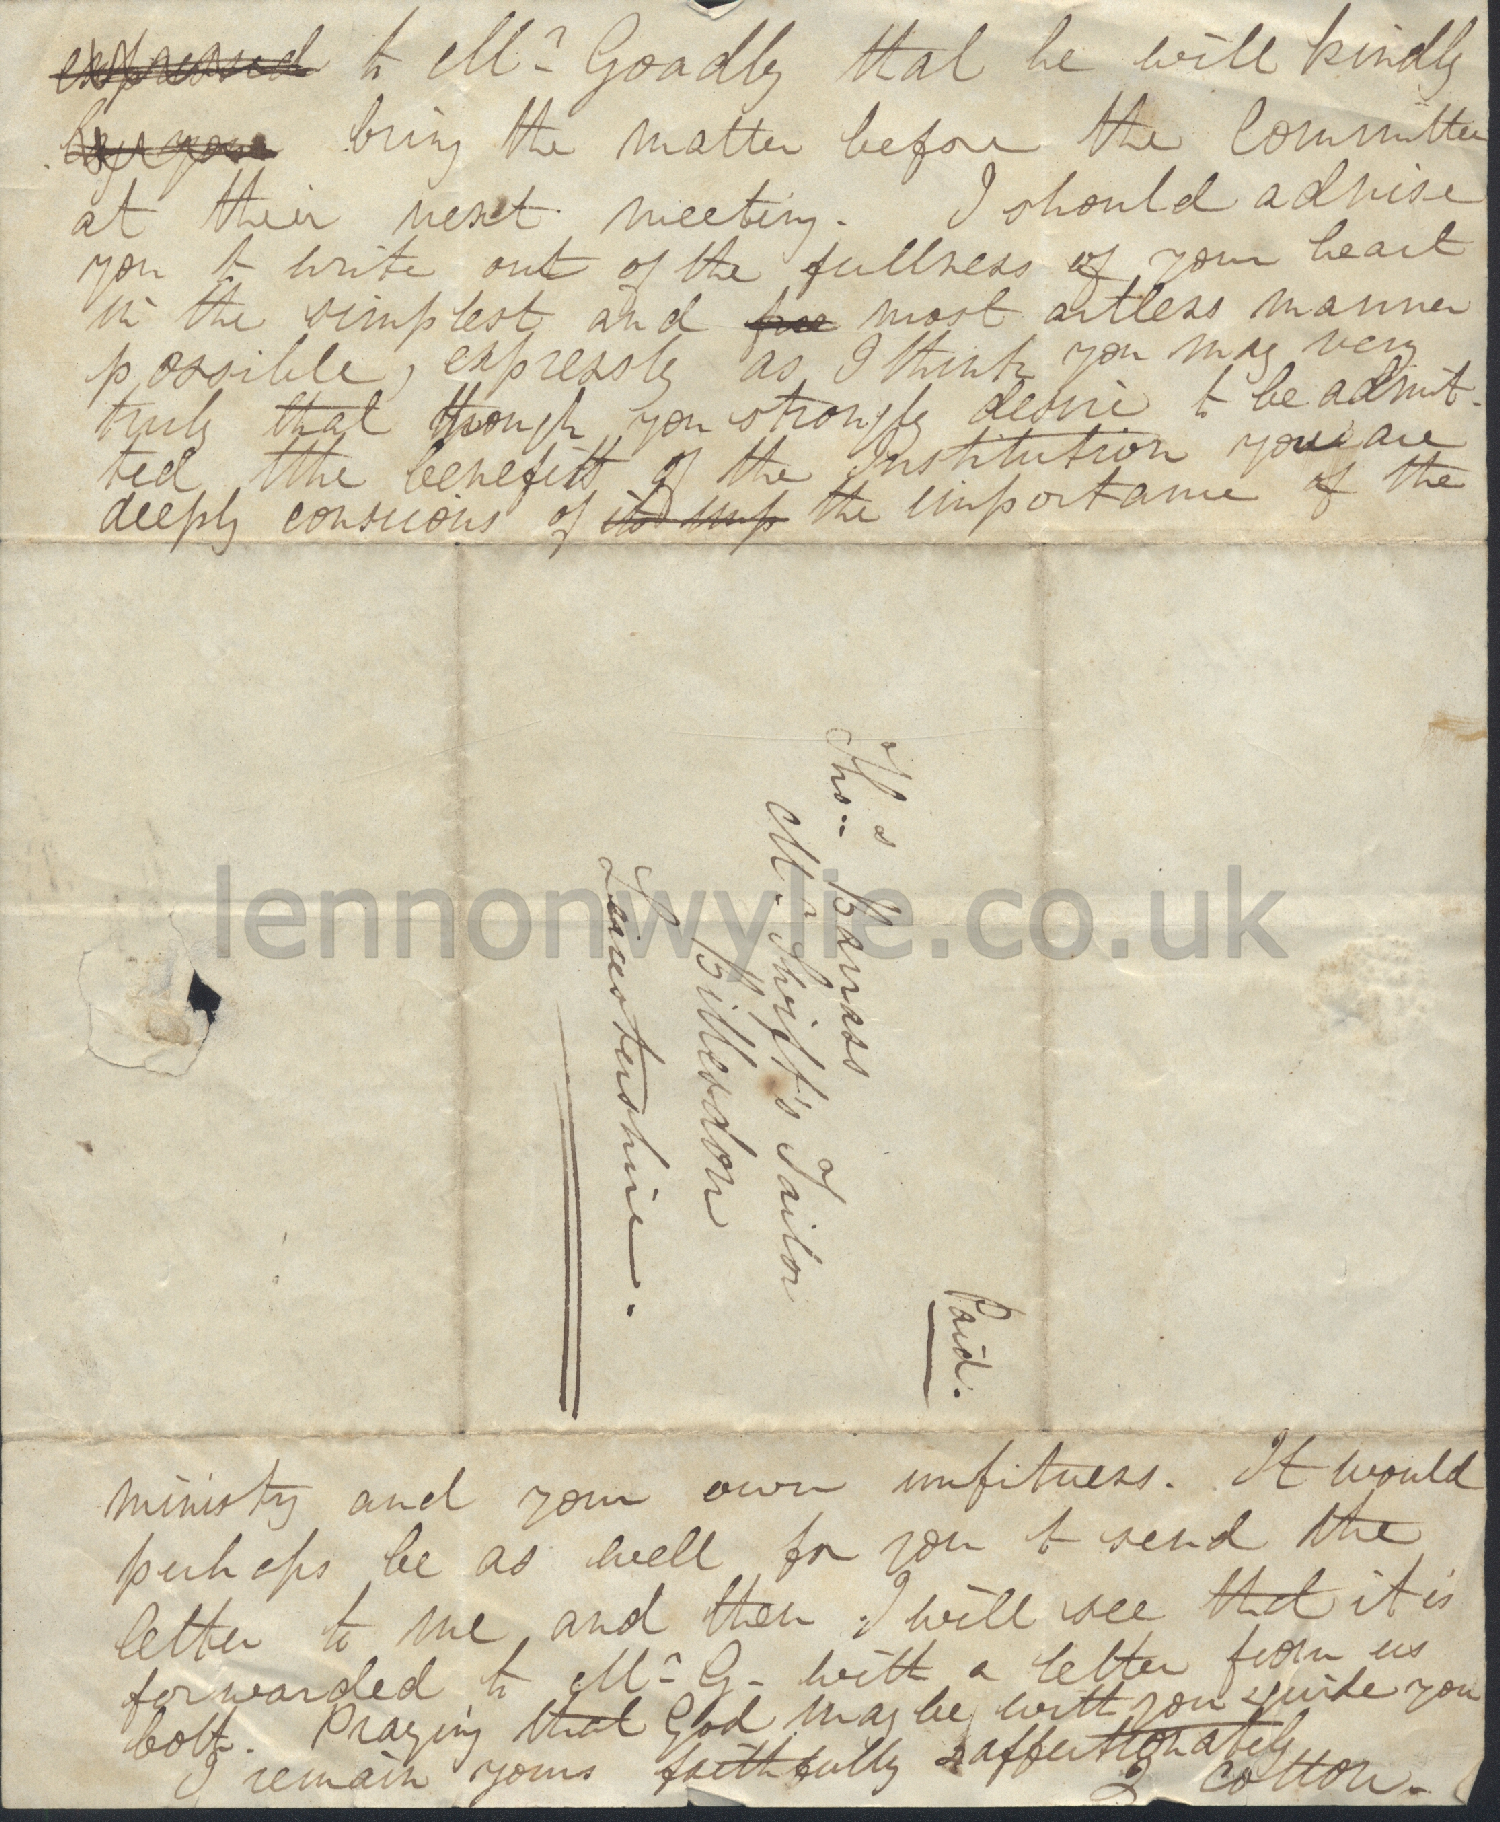 expressed to Mr Goadby that he will kindly
bring the matter before the Committee
at their next meeting. I should advise
you to write out of the fullness of your heart
in the simplest and free most artless manner
possible, expressly as I think you may very
truly that though you strongly desire to be admit-
ted the benefits of the Institution you are
deeply conscious of its imp the importance of the
Thos Barrass
Mr Thrift's Tailor
Billesdon
Leicestershire.
Paid.
lennonwylie.co.uk
ministry and your own unfitness. It would
perhaps be as well for you to send the
letter to me and then I will see that it is
forwarded to Mr G- with a letter from us
both. Praying that God may be with you & guide you
I remain yours faithfully & affectionately
Cotton.